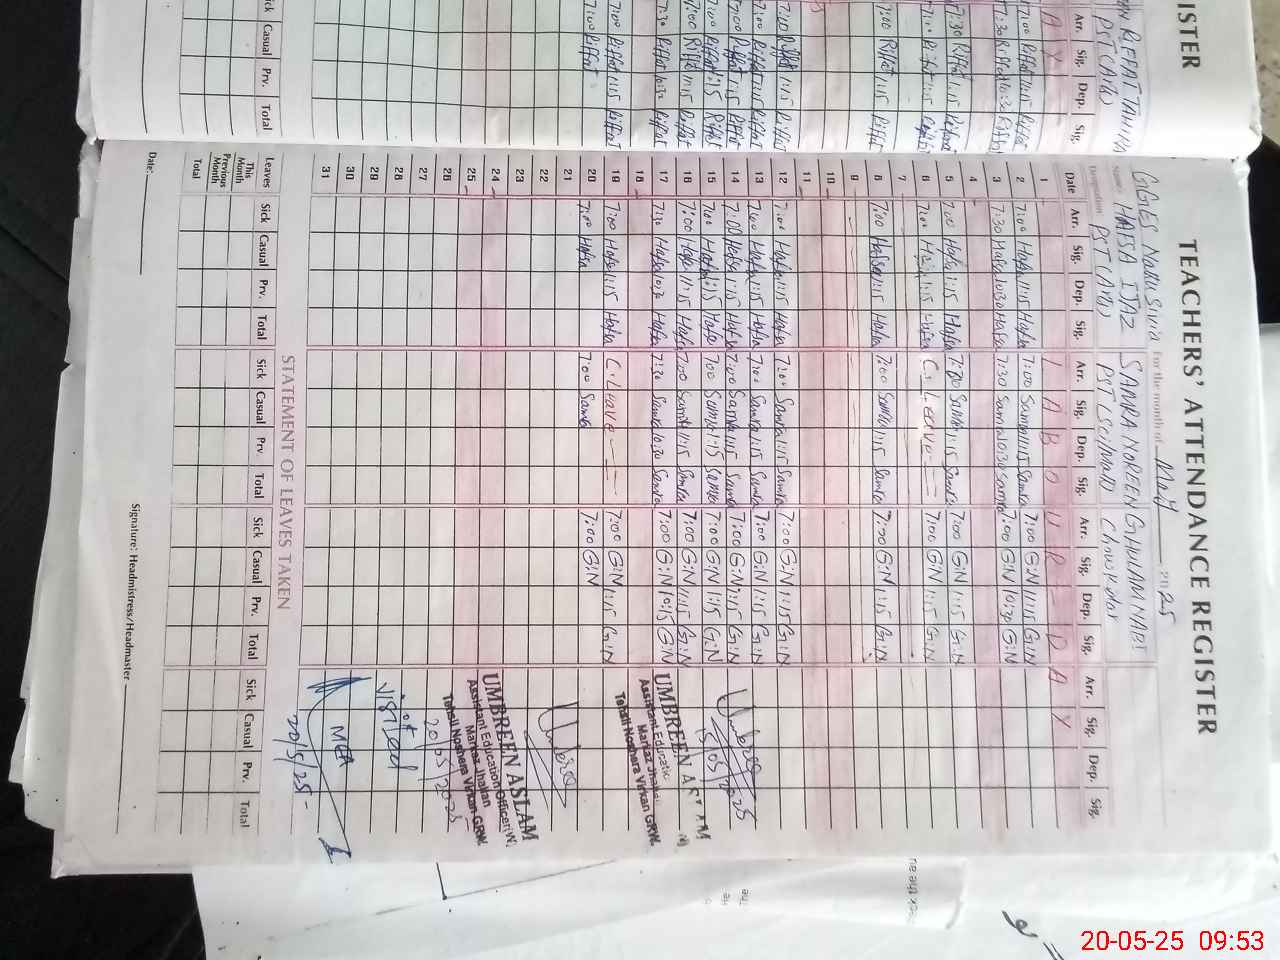 TEACHERS' ATTENDANCE REGISTER
GGES Nallu Sivia For the month of May 2025
Name: HAFSA IJAZ SAMRA NOREEN GHULAM NABI
Designation PST (Arts) PST (Sci/Math) Chowkidar
Date Arr. Sig. Dep. Sig. Arr. Sig. Dep. Sig. Arr. Sig. Dep. Sig. Arr. Sig. Dep. Sig.
1 L A B O U R - D A Y
2 7:00 Hafsa 1:15 Hafsa 7:00 Samra 1:15 Samra 7:00 G:N 1:15 G:N
3 7:30 Hafsa 10:30 Hafsa 7:30 Samra 10:30 Samra 7:00 G:N 10:30 G:N
4
5 7:00 Hafsa 1:15 Hafsa 7:00 Samra 1:15 Samra 7:00 G:N 1:15 G:N
6 7:00 Hafsa 1:15 Hafsa C. Leave 7:00 G:N 1:15 G:N
7
8 7:00 Hafsa 1:15 Hafsa 7:00 Samra 1:15 Samra 7:00 G:N 1:15 G:N
9
10
11
12 7:00 Hafsa 1:15 Hafsa 7:00 Samra 1:15 Samra 7:00 G:N 1:15 G:N
13 7:00 Hafsa 1:15 Hafsa 7:00 Samra 1:15 Samra 7:00 G:N 1:15 G:N
14 7:00 Hafsa 1:15 Hafsa 7:00 Samra 1:15 Samra 7:00 G:N 1:15 G:N
15 7:00 Hafsa 1:15 Hafsa 7:00 Samra 1:15 Samra 7:00 G:N 1:15 G:N
16 7:00 Hafsa 1:15 Hafsa 7:00 Samra 1:15 Samra 7:00 G:N 1:15 G:N
17 7:30 Hafsa 10:30 Hafsa 7:30 Samra 10:30 Samra 7:00 G:N 10:15 G:N
18
19 7:00 Hafsa 1:15 Hafsa C. Leave 7:00 G:N 1:15 G:N
20 7:00 Hafsa 7:00 Samra 7:00 G:N
21
22
23
24
25
26
27
28
29
30
31
15/05/2025
UMBREEN ASLAM
Assistant Education
Markaz Jhallan
Tehsil Noshera Virkan GRW.
UMBREEN ASLAM
Assistant Education Officer(W)
Markaz Jhallan
Tehsil Noshera Virkan GRW.
20/05/2025
visited
MEA
20/5/25
STATEMENT OF LEAVES TAKEN
Leaves Sick Casual Prv. Total Sick Casual Prv Total Sick Casual Prv. Total Sick Casual Prv. Total
This Month
Previous Month
Total
Date: Signature: Headmistress/Headmaster
ISTER
RIFFAT
PST (Arts)
Arr. Sig. Dep. Sig.
A Y
7:00 Riffat 1:15 Riffat
7:30 Riffat 10:30 Riffat
7:30 Riffat 1:15 Riffat
7:00 Riffat 1:15 Riffat
7:00 Riffat 1:15 Riffat
7:00 Riffat 1:15 Riffat
7:00 Riffat 1:15 Riffat
7:00 Riffat 1:15 Riffat
7:00 Riffat 1:15 Riffat
7:00 Riffat 1:15 Riffat
7:30 Riffat 10:30 Riffat
7:00 Riffat 1:15 Riffat
7:00 Riffat
Sick Casual Prv. Total
20-05-25 09:53